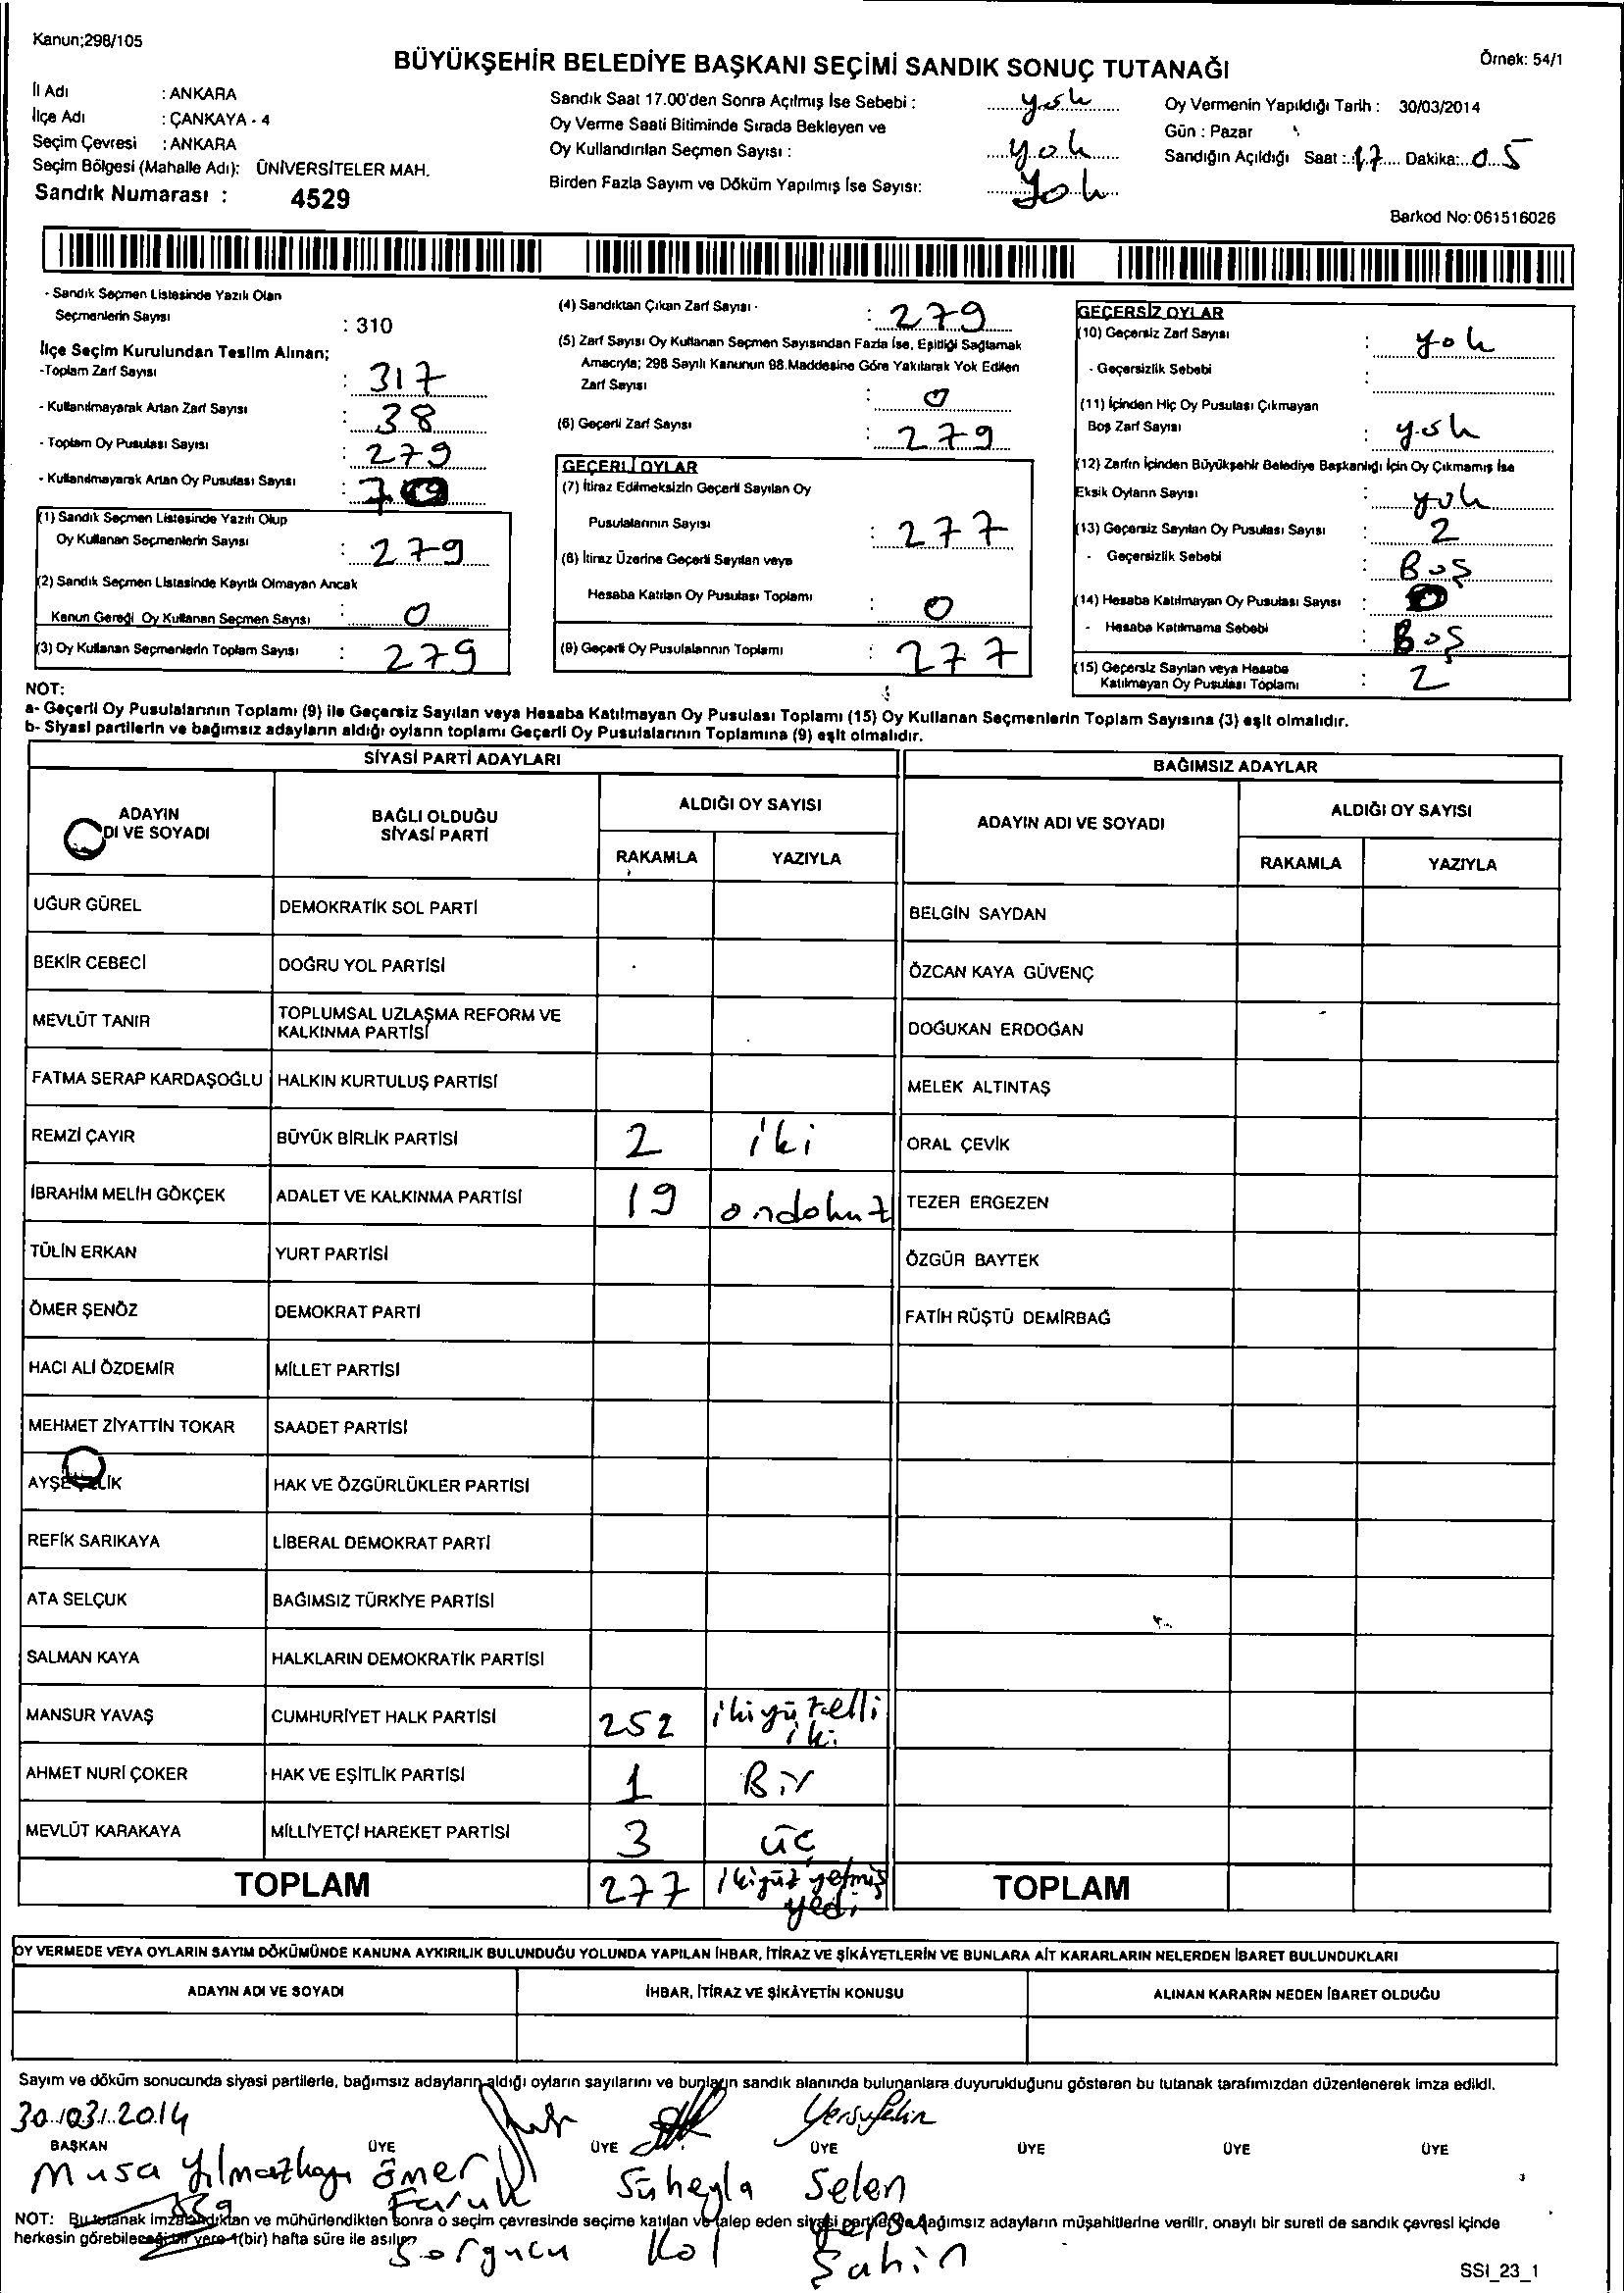 Kanun;298/105
BÜYÜKŞEHİR BELEDİYE BAŞKANI SEÇİMİ SANDIK SONUÇ TUTANAĞI
Örnek: 54/1
İl Adı : ANKARA
İlçe Adı : ÇANKAYA - 4
Seçim Çevresi : ANKARA
Seçim Bölgesi (Mahalle Adı): ÜNİVERSİTELER MAH.
Sandık Numarası : 4529
Sandık Saat 17.00'den Sonra Açılmış İse Sebebi : yok
Oy Verme Saati Bitiminde Sırada Bekleyen ve
Oy Kullandırılan Seçmen Sayısı : yok
Birden Fazla Sayım ve Döküm Yapılmış İse Sayısı: yok
Oy Vermenin Yapıldığı Tarih : 30/03/2014
Gün : Pazar
Sandığın Açıldığı Saat : 17 Dakika: 05
Barkod No: 061516026
- Sandık Seçmen Listesinde Yazılı Olan
Seçmenlerin Sayısı : 310
İlçe Seçim Kurulundan Teslim Alınan;
-Toplam Zarf Sayısı : 317
- Kullanılmayarak Artan Zarf Sayısı : 38
- Toplam Oy Pusulası Sayısı : 279
- Kullanılmayarak Artan Oy Pusulası Sayısı :
(1) Sandık Seçmen Listesinde Yazılı Olup
Oy Kullanan Seçmenlerin Sayısı : 279
(2) Sandık Seçmen Listesinde Kayıtlı Olmayan Ancak
Kanun Gereği Oy Kullanan Seçmen Sayısı : 0
(3) Oy Kullanan Seçmenlerin Toplam Sayısı : 279
(4) Sandıktan Çıkan Zarf Sayısı - : 279
(5) Zarf Sayısı Oy Kullanan Seçmen Sayısından Fazla İse, Eşitliği Sağlamak
Amacıyla; 298 Sayılı Kanunun 98.Maddesine Göre Yakılarak Yok Edilen
Zarf Sayısı : 0
(6) Geçerli Zarf Sayısı : 279
GEÇERLİ OYLAR
(7) İtiraz Edilmeksizin Geçerli Sayılan Oy
Pusulalarının Sayısı : 277
(8) İtiraz Üzerine Geçerli Sayılan veya
Hesaba Katılan Oy Pusulası Toplamı : 0
(9) Geçerli Oy Pusulalarının Toplamı : 277
GEÇERSİZ OYLAR
(10) Geçersiz Zarf Sayısı : yok
- Geçersizlik Sebebi :
(11) İçinden Hiç Oy Pusulası Çıkmayan
Boş Zarf Sayısı : yok
(12) Zarfın İçinden Büyükşehir Belediye Başkanlığı İçin Oy Çıkmamış İse
Eksik Oyların Sayısı : yok
(13) Geçersiz Sayılan Oy Pusulası Sayısı : 2
- Geçersizlik Sebebi : Boş
(14) Hesaba Katılmayan Oy Pusulası Sayısı :
- Hesaba Katılmama Sebebi : Boş
(15) Geçersiz Sayılan veya Hesaba
Katılmayan Oy Pusulası Toplamı : 2
NOT:
a- Geçerli Oy Pusulalarının Toplamı (9) ile Geçersiz Sayılan veya Hesaba Katılmayan Oy Pusulası Toplamı (15) Oy Kullanan Seçmenlerin Toplam Sayısına (3) eşit olmalıdır.
b- Siyasi partilerin ve bağımsız adayların aldığı oyların toplamı Geçerli Oy Pusulalarının Toplamına (9) eşit olmalıdır.
SİYASİ PARTİ ADAYLARI
BAĞIMSIZ ADAYLAR
ADAYIN
DI VE SOYADI
BAĞLI OLDUĞU
SİYASİ PARTİ
ALDIĞI OY SAYISI
RAKAMLA YAZIYLA
ADAYIN ADI VE SOYADI
ALDIĞI OY SAYISI
RAKAMLA YAZIYLA
UĞUR GÜREL DEMOKRATİK SOL PARTİ BELGİN SAYDAN
BEKİR CEBECİ DOĞRU YOL PARTİSİ ÖZCAN KAYA GÜVENÇ
MEVLÜT TANIR TOPLUMSAL UZLAŞMA REFORM VE
KALKINMA PARTİSİ DOĞUKAN ERDOĞAN
FATMA SERAP KARDAŞOĞLU HALKIN KURTULUŞ PARTİSİ MELEK ALTINTAŞ
REMZİ ÇAYIR BÜYÜK BİRLİK PARTİSİ 2 iki ORAL ÇEVİK
İBRAHİM MELİH GÖKÇEK ADALET VE KALKINMA PARTİSİ 19 ondokuz TEZER ERGEZEN
TÜLİN ERKAN YURT PARTİSİ ÖZGÜR BAYTEK
ÖMER ŞENÖZ DEMOKRAT PARTİ FATİH RÜŞTÜ DEMİRBAĞ
HACI ALİ ÖZDEMİR MİLLET PARTİSİ
MEHMET ZİYATTİN TOKAR SAADET PARTİSİ
HAK VE ÖZGÜRLÜKLER PARTİSİ
REFİK SARIKAYA LİBERAL DEMOKRAT PARTİ
ATA SELÇUK BAĞIMSIZ TÜRKİYE PARTİSİ
SALMAN KAYA HALKLARIN DEMOKRATİK PARTİSİ
MANSUR YAVAŞ CUMHURİYET HALK PARTİSİ 252 ikiyüzelli
iki
AHMET NURİ ÇOKER HAK VE EŞİTLİK PARTİSİ 1 Bir
MEVLÜT KARAKAYA MİLLİYETÇİ HAREKET PARTİSİ 3 üç
TOPLAM 277 ikiyüz yetmiş
yedi TOPLAM
OY VERMEDE VEYA OYLARIN SAYIM DÖKÜMÜNDE KANUNA AYKIRILIK BULUNDUĞU YOLUNDA YAPILAN İHBAR, İTİRAZ VE ŞİKÂYETLERİN VE BUNLARA AİT KARARLARIN NELERDEN İBARET BULUNDUKLARI
ADAYIN ADI VE SOYADI İHBAR, İTİRAZ VE ŞİKÂYETİN KONUSU ALINAN KARARIN NEDEN İBARET OLDUĞU
Sayım ve döküm sonucunda siyasi partilerle, bağımsız adayların aldığı oyların sayılarını ve bunların sandık alanında bulunanlara duyurulduğunu gösteren bu tutanak tarafımızdan düzenlenerek imza edildi.
30/03/2014
BAŞKAN ÜYE ÜYE ÜYE ÜYE ÜYE ÜYE
Musa Yılmazkaya Ömer Süheyla Selen
Faruk
NOT: Bu tutanak imzalandıktan ve mühürlendikten sonra o seçim çevresinde seçime katılan ve talep eden siyasi parti bağımsız adayların müşahitlerine verilir, onaylı bir sureti de sandık çevresi içinde
herkesin görebileceği bir yere 1(bir) hafta süre ile asılır.
Sorgucu Kol Şahin
SSI_23_1